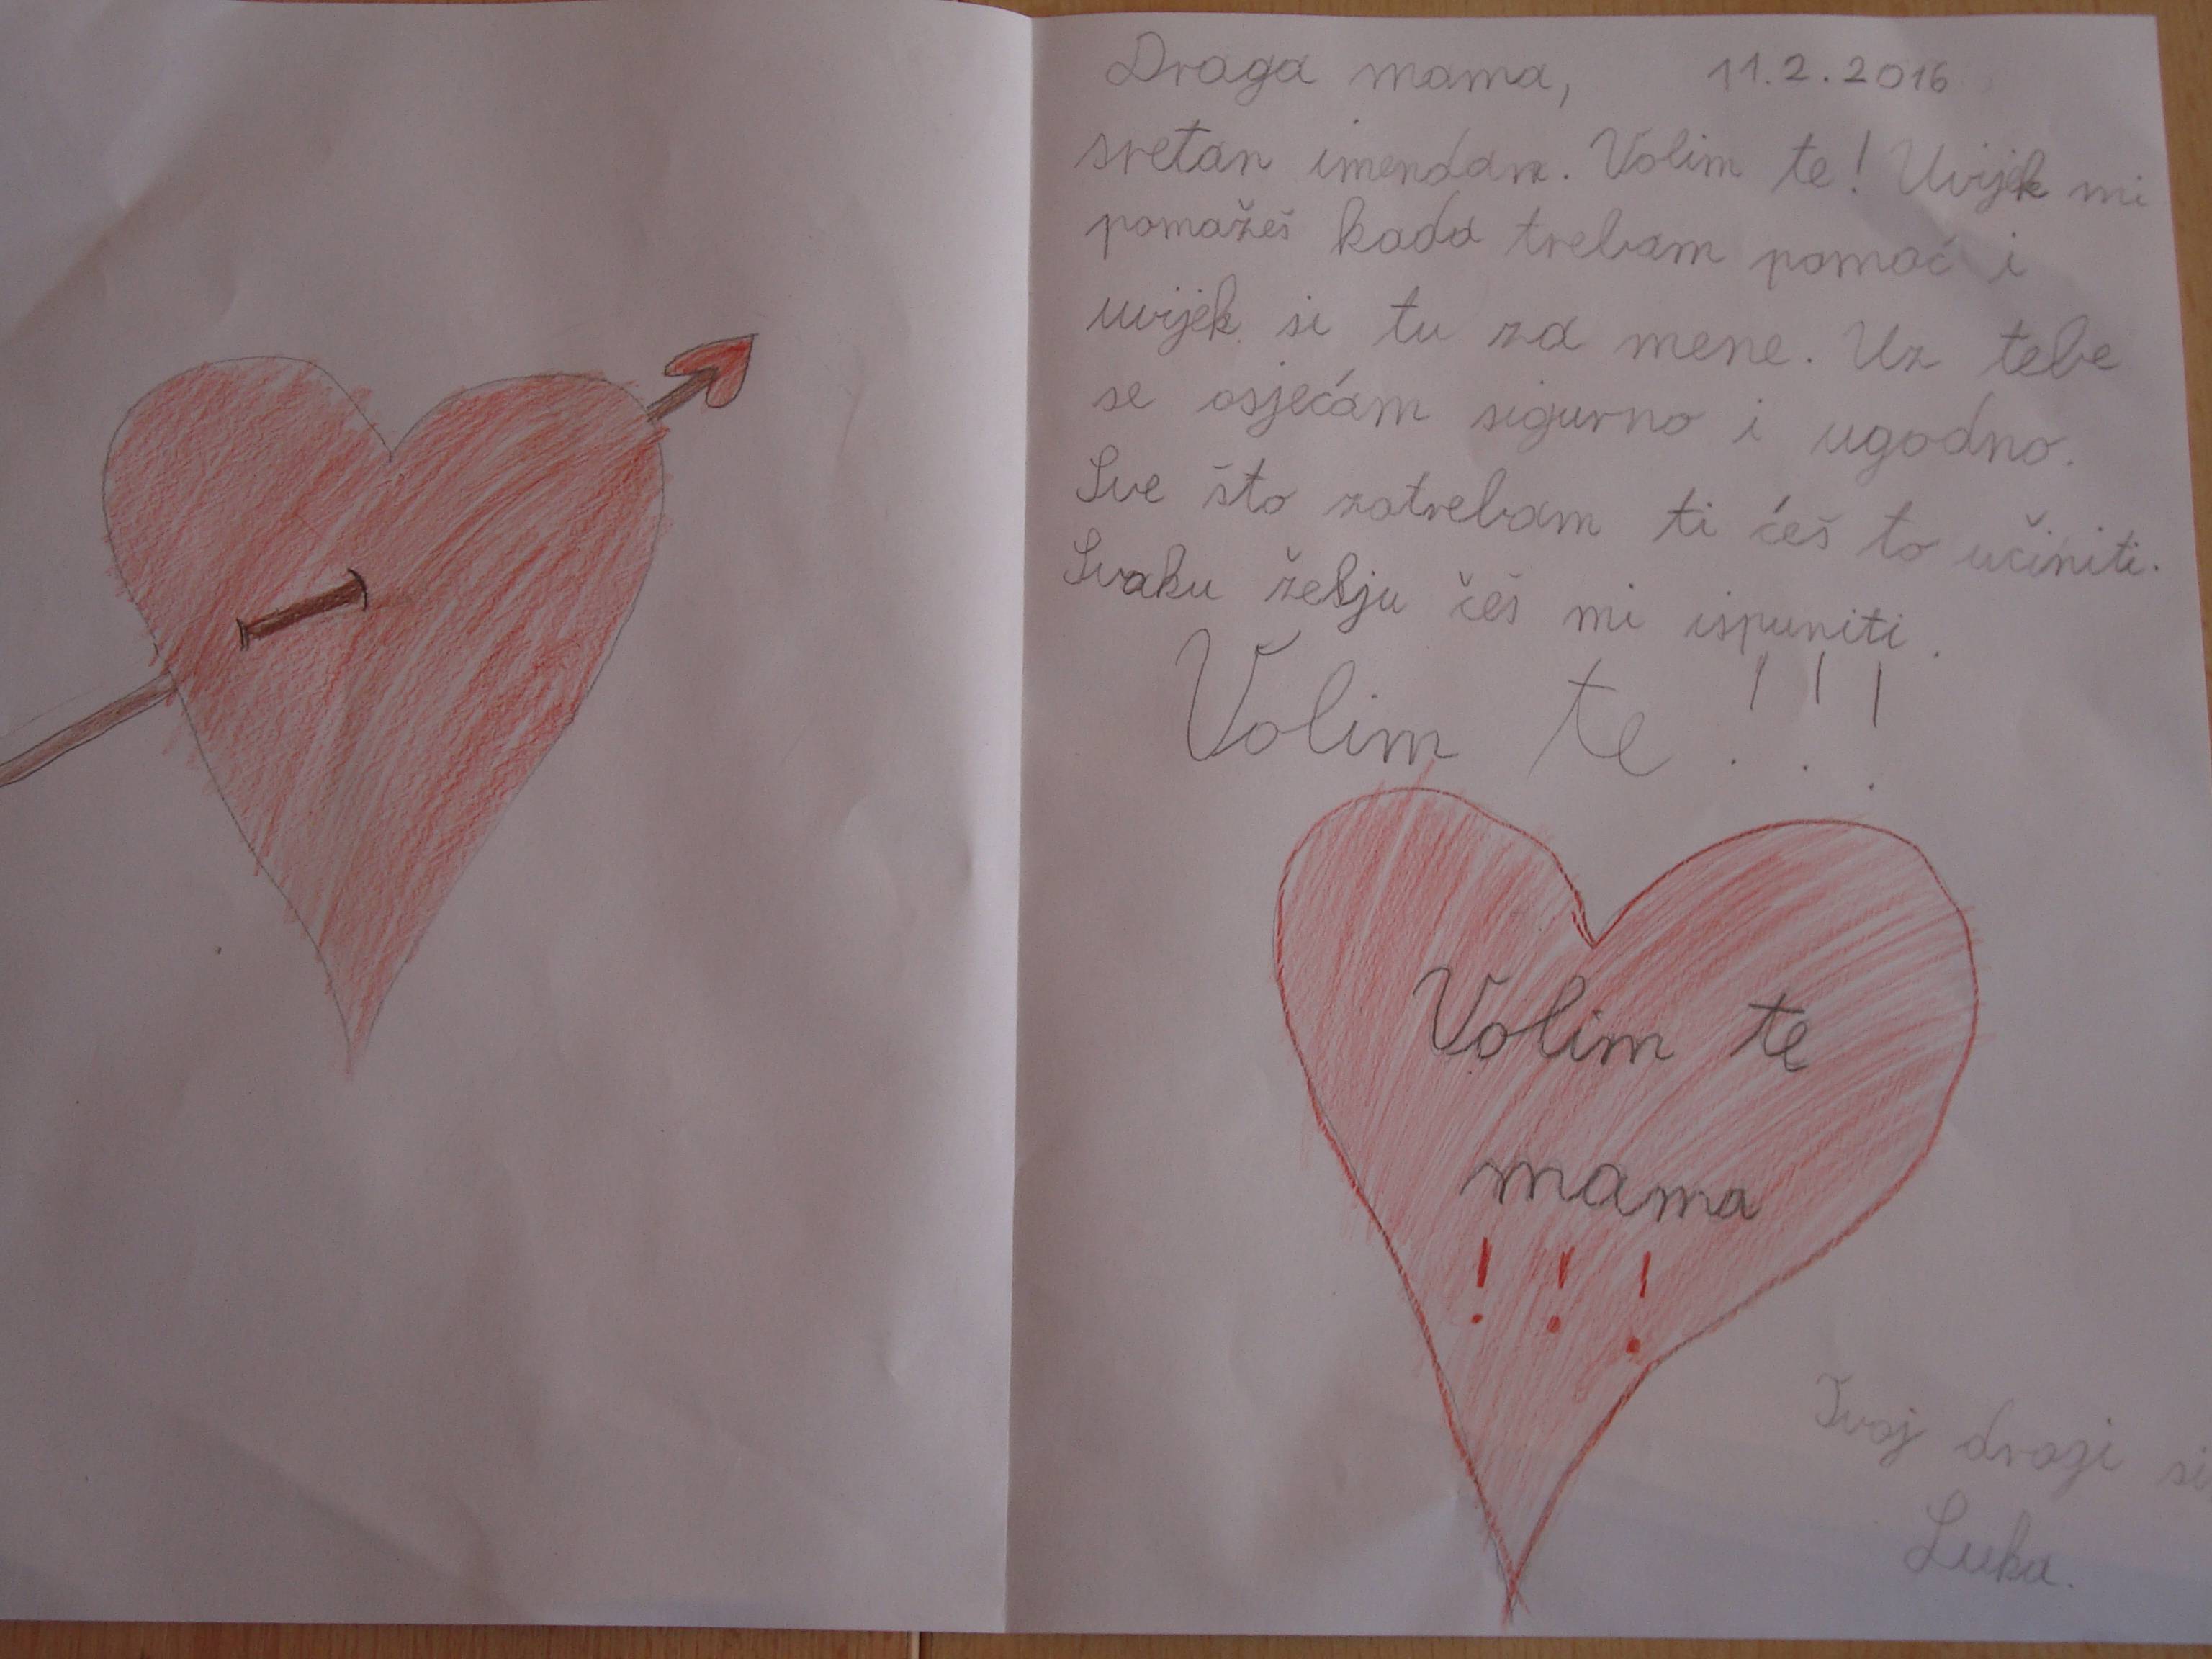 Draga mama, 11.2.2016
sretan imendan. Volim te! Uvijek mi
pomažeš kada trebam pomoć i
uvijek si tu za mene. Uz tebe
se osjećam sigurno i ugodno.
Sve što zatrebam ti ćeš to učiniti.
Svaku želju češ mi ispuniti.
Volim te!!!
Volim te
mama
!!!
Tvoj dragi si
Luka.